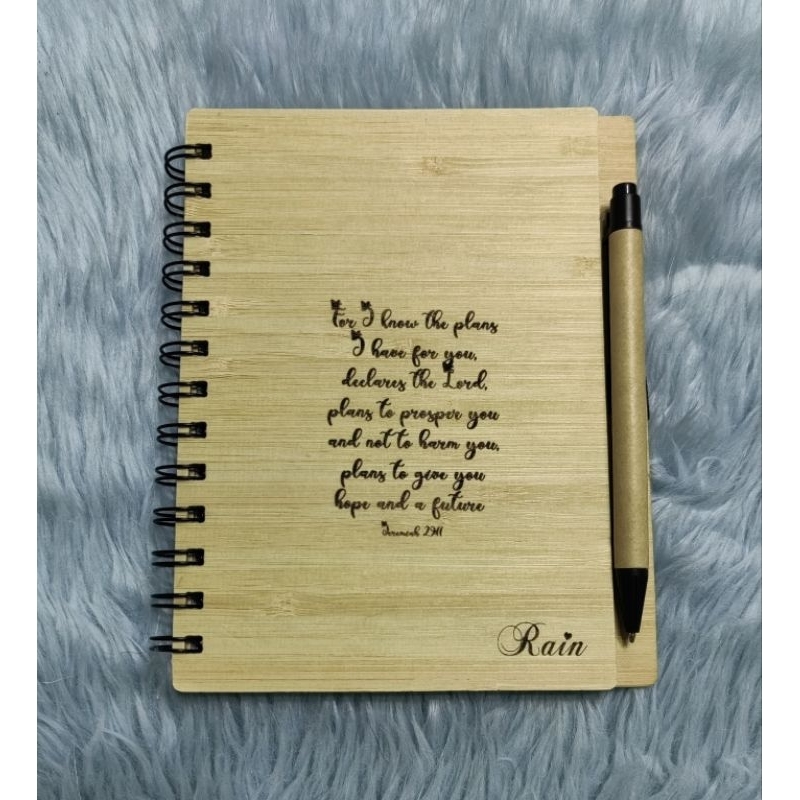 For I know the plans
I have for you,
declares the Lord,
plans to prosper you
and not to harm you,
plans to give you
hope and a future
Jeremiah 29:11
Rain